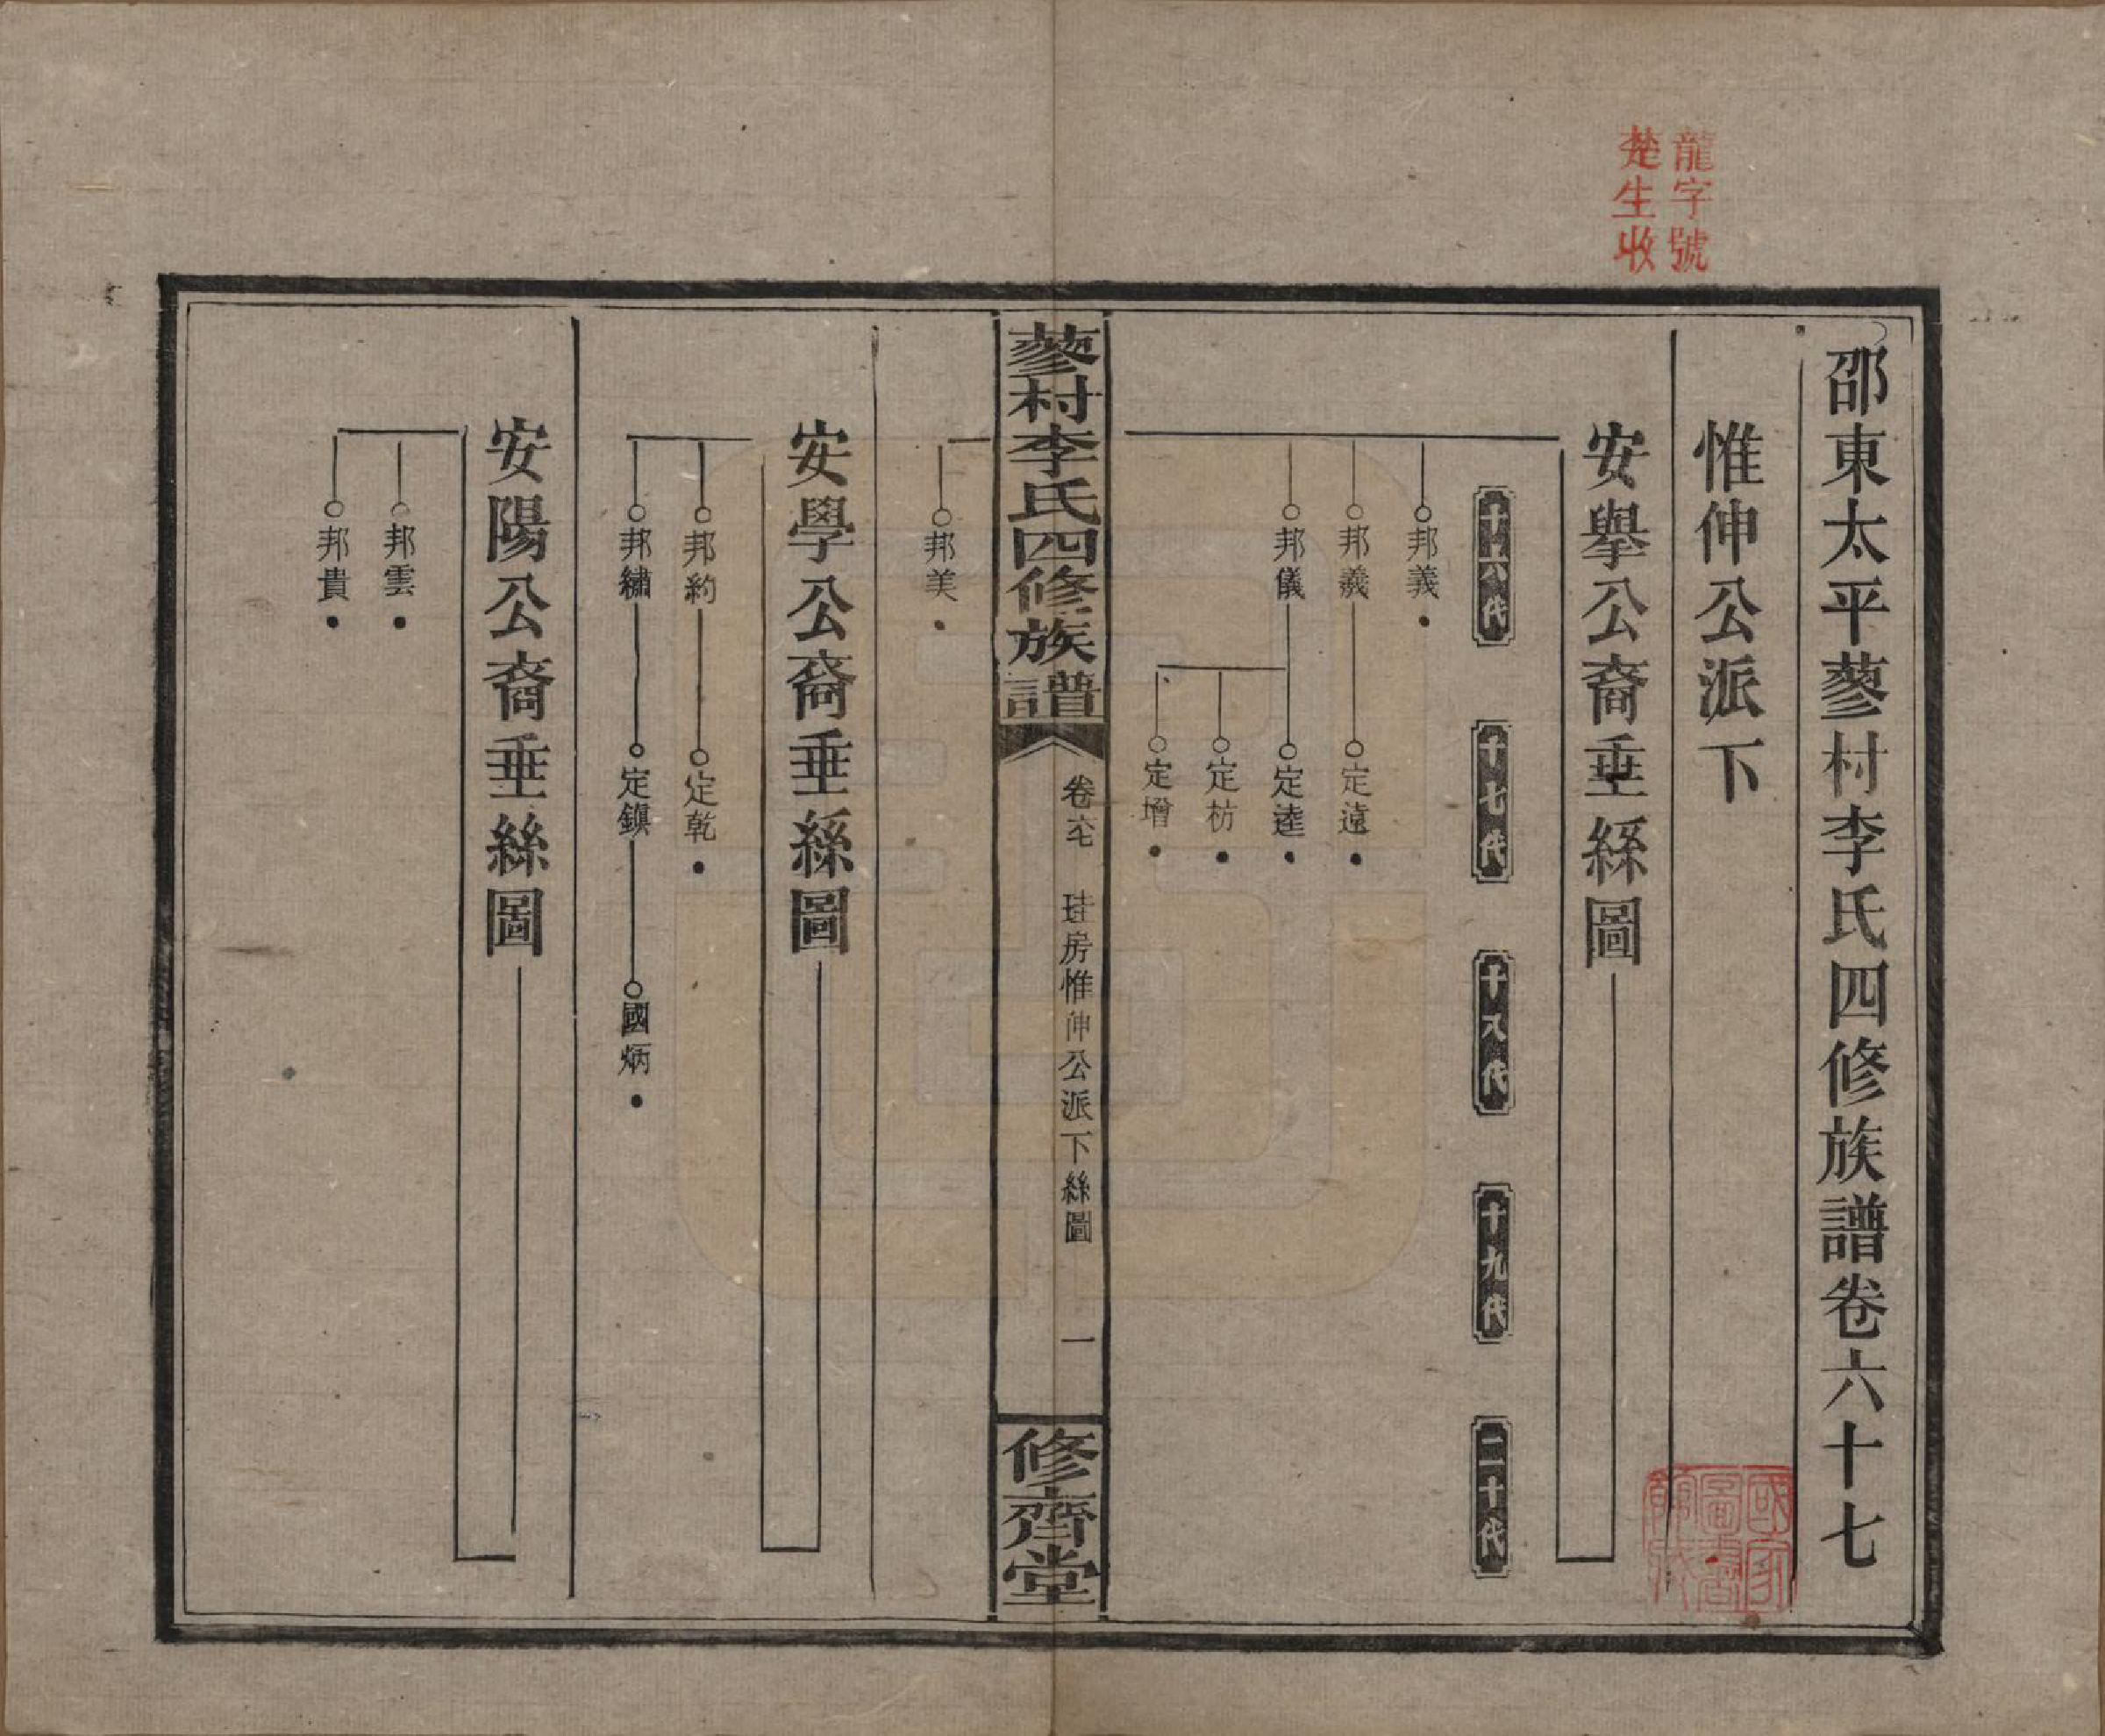 龍字號
楚生收
邵東太平蓼村李氏四修族譜卷六十七
惟伸公派下
安舉公裔垂絲圖
十六代
十七代
十八代
十九代
二十代
邦義
邦羲
定遠
邦儀
定逵
定枋
定增
蓼村李氏四修族譜
卷六七
珪房惟伸公派下絲圖
一
修齊堂
邦美
安學公裔垂絲圖
邦約
定乾
邦繡
定鎮
國炳
安陽公裔垂絲圖
邦雲
邦貴
國家圖書館藏